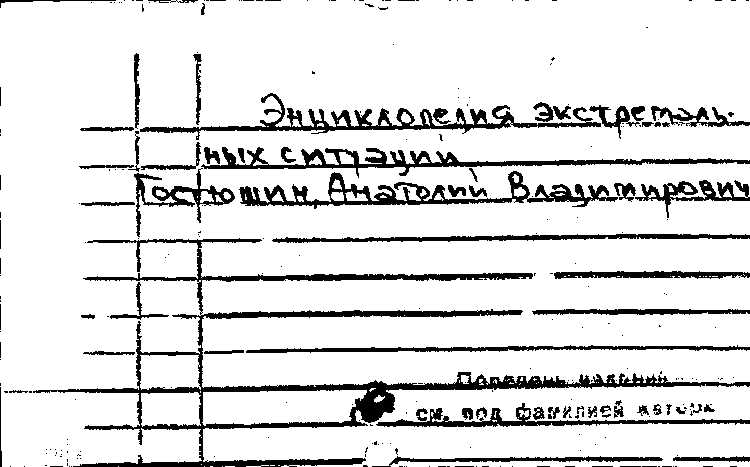 Энциклопедия экстремаль-
ных ситуаций
Гостюшин, Анатолий Владимирович
Перечень изданий
см. под фамилией автора